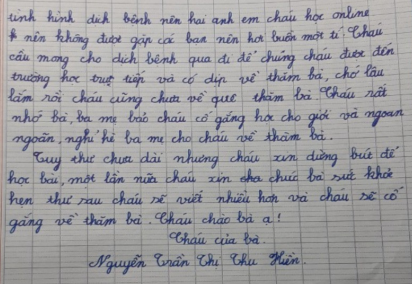 tình hình dịch bệnh nên hai anh em cháu học online
nên không được gặp các bạn nên hơi buồn một tí. Cháu
cầu mong cho dịch bệnh qua đi để chúng cháu được đến
trường học trực tiếp và có dịp về thăm bà, chớ lâu
lắm rồi cháu cũng chưa về quê thăm bà. Cháu rất
nhớ bà, ba mẹ bảo cháu cố gắng học cho giỏi và ngoan
ngoãn, nghỉ hè ba mẹ cho cháu về thăm bà.
Tuy thư chưa dài nhưng cháu xin dừng bút để
học bài, một lần nữa cháu xin chúc bà sức khỏe
hẹn thư sau cháu sẽ viết nhiều hơn và cháu sẽ cố
gắng về thăm bà. Cháu chào bà ạ!
Cháu của bà.
Nguyễn Trần Thị Thu Hiền.